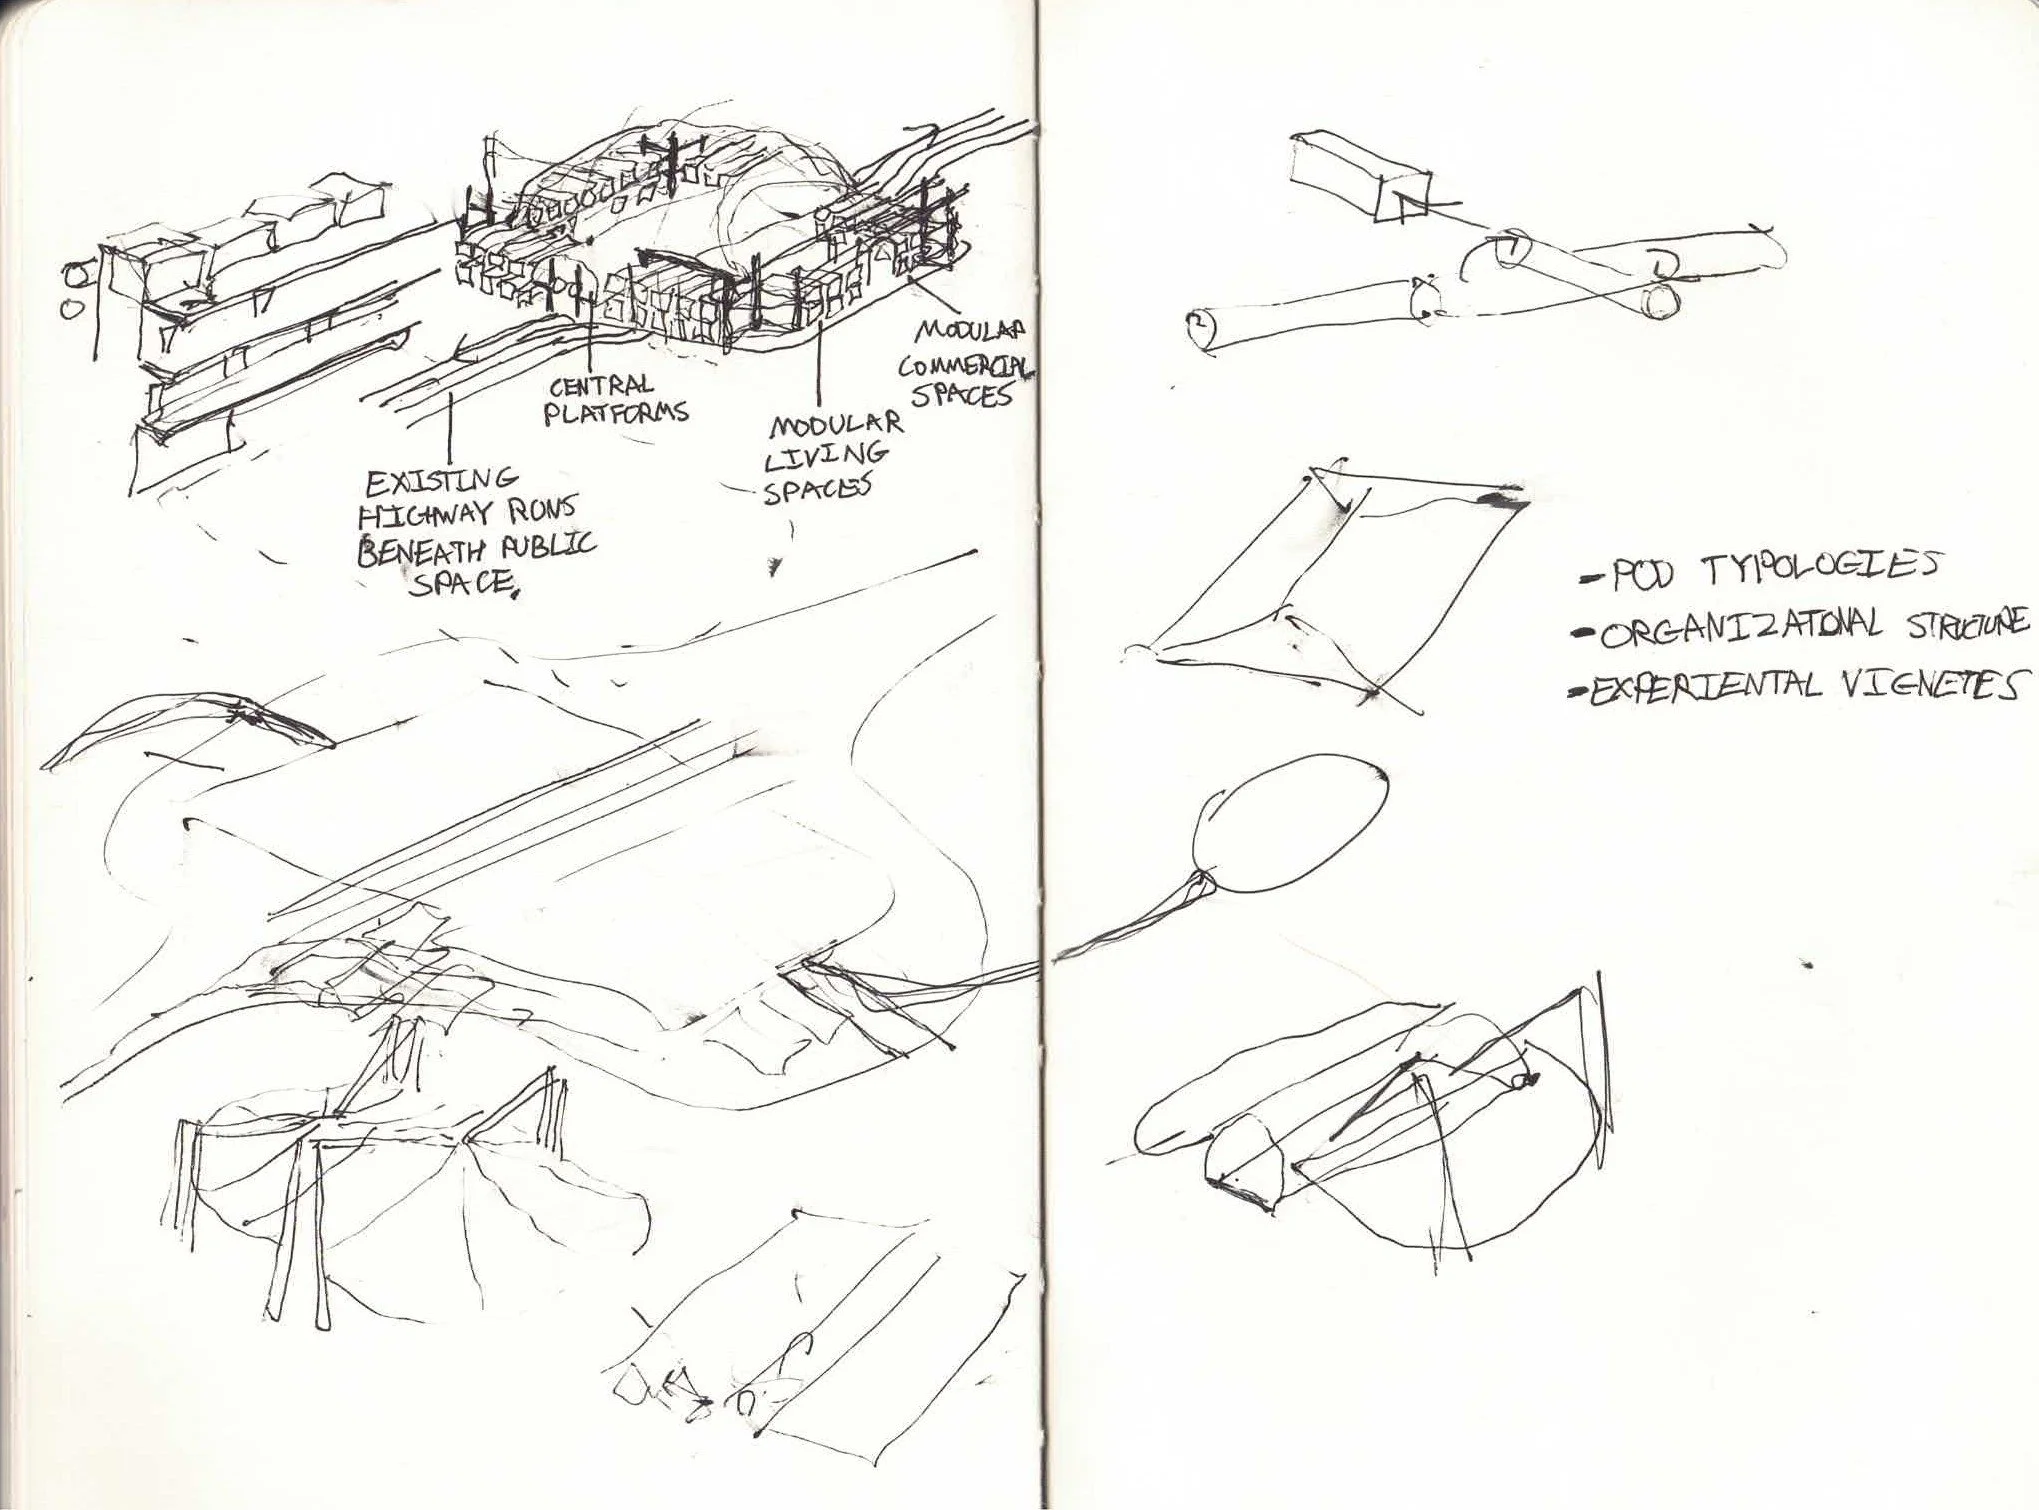 CENTRAL
PLATFORMS
MODULAR
COMMERCIAL
SPACES
MODULAR
LIVING
SPACES
EXISTING
HIGHWAY RUNS
BENEATH PUBLIC
SPACE.
-POD TYPOLOGIES
-ORGANIZATONAL STRUCTURE
-EXPERIENTAL VIGNETES